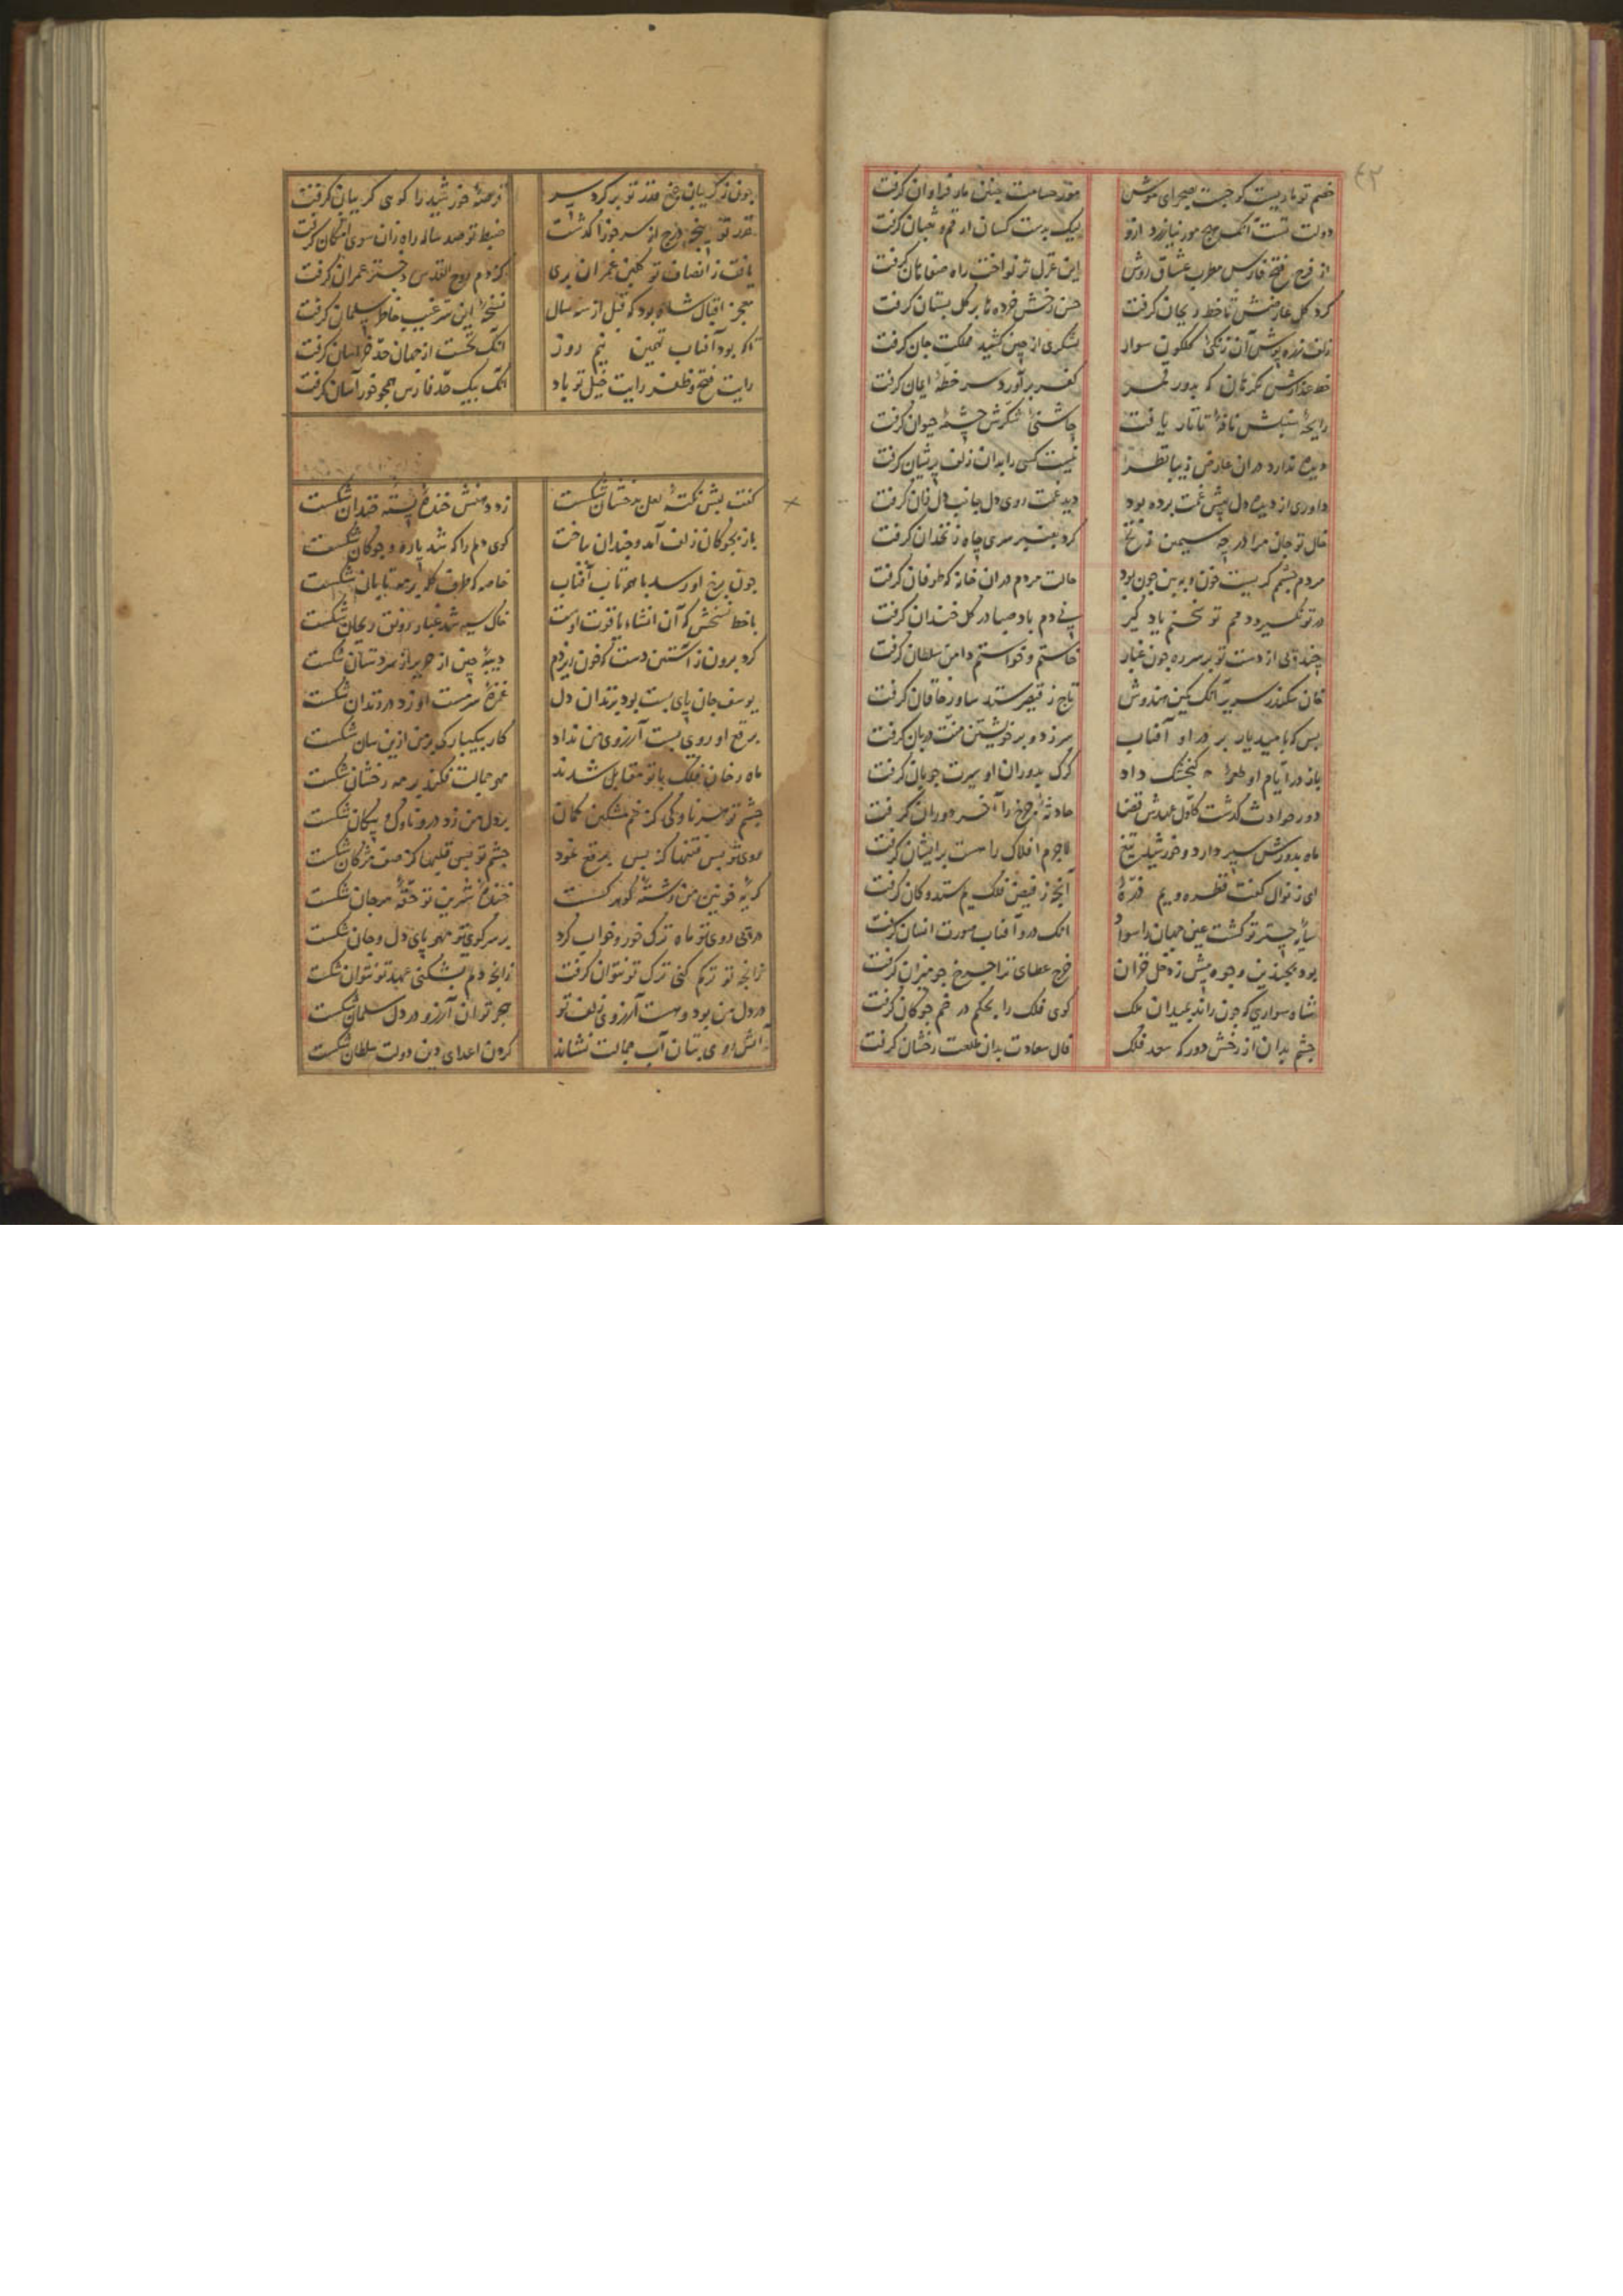 ۴۲
خصم تو ماریست کو جست بصحرای موش
مور حسامت چنین مار فراوان گرفت
دولت تست آنکه مور نیازرد ازو
لیک بدست کسان ارقم و ثعبان گرفت
از فرح فتح فارس مطرب عشاق روش
این غزل تر نواخت راه صفاهان گرفت
گرد گل عارضش تا خط ریحان گرفت
حسن رخش خرده ها بر گل بستان گرفت
زلف زره پوش آن زنگی گلگون سوار
لشکری از چین کشید مملکت جان گرفت
خط عذارش نگر کان که بدور قمر
کفر برآورد سر خطه ایمان گرفت
رایحه سنبلش نافه تاتار یافت
چاشنی شکرش چشمه حیوان گرفت
دیده ندارد دران عارض زیبا نظر
نیست کسی را بدان زلف پریشان گرفت
داوری از دیده دل پیش غمت برده بود
دید غمت روی دل جانب دل زان گرفت
خال تو جان مرا در چه سیمین زنخ
کرد بعنبر سری چاه زنخدان گرفت
مردم چشمم گریست خون و ببین چون بود
حالت مردم دران خانه که طوفان گرفت
در تو نگیرد دمم تو نختم یاد گیر
پی دم باد صبا در گل خندان گرفت
چند دلی از دست تو بر سر ره چون غبار
خاستم و خواستم دامن سلطان گرفت
خان سکندر سریر آنک کمین هندوش
تاج ز قیصر ستد ساو ز خاقان گرفت
بس که بامید بار بر در او آفتاب
سر زد و بر خویشتن منت دربان گرفت
باز در ایام او طعمه به کنجشک داد
گرگ بدوران او سیرت چوپان گرفت
دور حوادث گذشت کاول عهدش قضا
حادثه چرخ را آخر دوران گرفت
ماه بدورش سپر دارد و خورشید تیغ
لاجرم افلاک را هست بر ایشان گرفت
ای ز نوال کفت قطره و یم ذره
آنچه ز فیض فلک یم ستد و کان گرفت
سایه چتر تو گشت عین جهان را سواد
انک درو آفتاب صورت انسان گرفت
بود بچندین وجوه پیش زحل قران
خرج عطای ترا چرخ جو میزان گرفت
شاه سواری که چون راند بمیدان ملک
گوی فلک را بحکم در خم چوگان گرفت
چشم بدان از رخش دور که سعد فلک
فال سعادت بدان طلعت رخشان گرفت
چون ز گریبان چرخ قدر تو بر کرد سر
قرصه خورشید را گوی گریبان گرفت
قدر تو پنجه درج از سر خوزا گذشت
ضبط تو صد ساله راه زان سوی امکان گرفت
یافت ز انصاف تو گلبن عمران بری
کز دم روح القدس دختر عمران گرفت
معجز اقبال شاه بود که قبل از سه سال
نسخه این سر غیب خاطر سلمان گرفت
تا که بود آفتاب تهمتن نیم روز
آنک نخست از جهان حد خراسان گرفت
رایت فتح و ظفر رایت خیل تو باد
آنک بیک حد فارس همچو خور آسان گرفت
گفت لبش نکته لعل بدخشان شکست
زد دهنش خنده پسته خندان شکست
باز بچوگان زلف آمد و چندان بتاخت
گوی دلم را که شد پاره و چوگان شکست
چون برخ او رسد با همه تاب آفتاب
خاصه که طرف کله بر مه تابان شکست
با خط نسخش که آن انشاء یاقوت اوست
خاک سیه شد غبار رونق ریحان شکست
کرد برون ز آستین دست که خون ریزدم
دیبه چین از حریر از سر دستان شکست
یوسف جان پای بست بود بزندان دل
غمزه سرمست او زد در زندان شکست
برقع او روی بست آرزوی من نداد
کار بیکبارگی بر من ازین سان شکست
ماه رخان فلک با تو مقابل شدند
مهر جمالت فکند بر مه رخشان شکست
چشم تو هر ناوکی کز خم مشکین کمان
بر دل من زد درو ناوک و پیکان شکست
روی تو بس فتنها کز پس برقع نمود
چشم تو بس قلبها کز صف مژگان شکست
گریه خونین من رشته گوهر گسست
خنده شیرین تو حقه مرجان شکست
در پی روی تو ماه ترک خور و خواب کرد
بر سر کوی تو مهر پای دل و جان شکست
زانچه تو ترکم کنی ترک تو نتوان گرفت
زانچه دلم بشکنی عهد تو نتوان شکست
در دل من بود و هست آرزوی زلف تو
هجر تو آن آرزو در دل سلمان شکست
آتش روی بتان آب جمالت نشاند
گردن اعدای دین دولت سلطان شکست